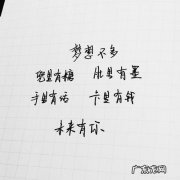 梦想不多
兜里有糖 肚里有墨
手里有活 卡里有钱
未来有你
广东龙网